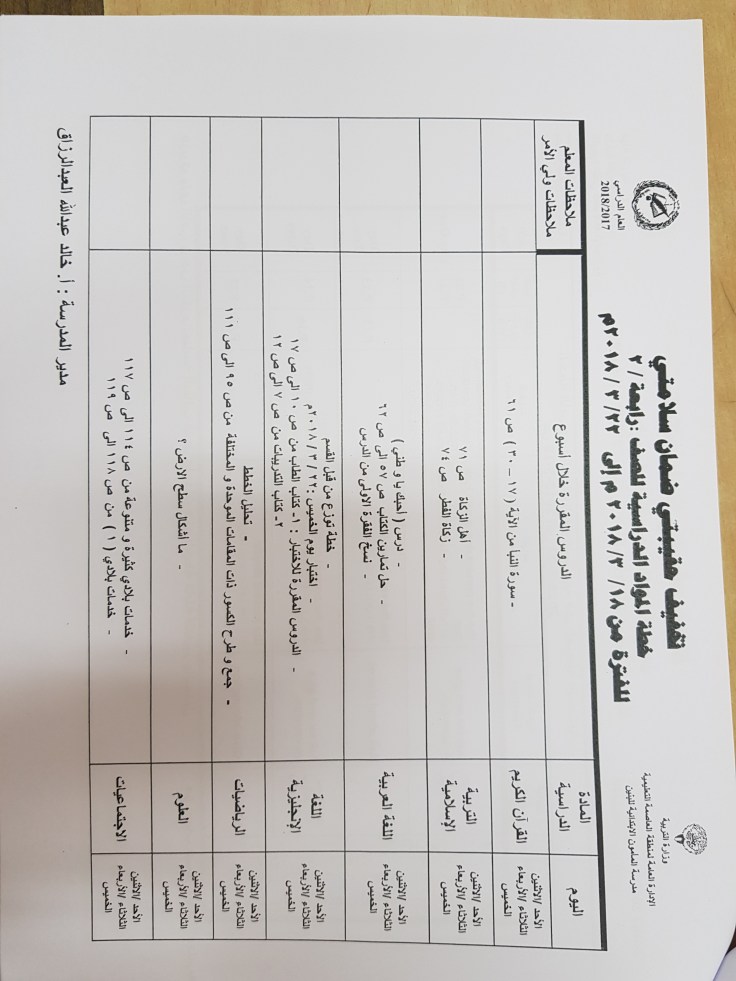 وزارة التربية
الإدارة العامة لمنطقة العاصمة التعليمية
مدرسة المأمون الابتدائية للبنين
العام الدراسي
2018/2017
تخفيف حقيبتي ضمان سلامتي
خطة المواد الدراسية للصف : رابعة / ٢
للفترة من ١٨ / ٣ / ٢٠١٨ م إلى ٢٢ / ٣ / ٢٠١٨م
اليوم
المادة الدراسية
الدروس المقررة خلال أسبوع
ملاحظات المعلم
ملاحظات ولي الأمر
الأحد /الاثنين
الثلاثاء /الأربعاء
الخميس
القرآن الكريم
- سورة النبا من الآية ( ١٧ – ٣٠ ) ص ٦١
الأحد /الاثنين
الثلاثاء /الأربعاء
الخميس
التربية
الإسلامية
- اهل الزكاة ص ٧١
- زكاة الفطر ص ٧٤
الأحد /الاثنين
الثلاثاء /الأربعاء
الخميس
اللغة العربية
- درس ( أحبك يا وطني )
- حل تمارين الكتاب ص ٥٧ الى ص ٦٢
- نسخ الفقرة الاولى من الدرس
الأحد /الاثنين
الثلاثاء /الأربعاء
الخميس
اللغة
الإنجليزية
- خطة توزع من قبل القسم
- اختبار يوم الخميس : ٢٢ / ٣ / ٢٠١٨م
- الدروس المقررة للاختبار : ١- كتاب الطالب من ص ١٠ الى ص ١٧
٢- كتاب التدريبات من ص ٧ الى ص ١٢
الأحد /الاثنين
الثلاثاء /الأربعاء
الخميس
الرياضيات
- تحليل الخطط
- جمع و طرح الكسور ذات المقامات الموحدة و المختلفة من ص ٩٥ الى ص ١١١
الأحد /الاثنين
الثلاثاء /الأربعاء
الخميس
العلوم
- ما أشكال سطح الارض ؟
الأحد /الاثنين
الثلاثاء /الأربعاء
الخميس
الاجتماعيات
- خدمات بلادي كثيرة و متنوعة من ص ١١٤ الى ص ١١٧
- خدمات بلادي ( ١ ) من ص ١١٨ الى ص ١١٩
مدير المدرسة : أ. خالد عبدالله العبدالرزاق